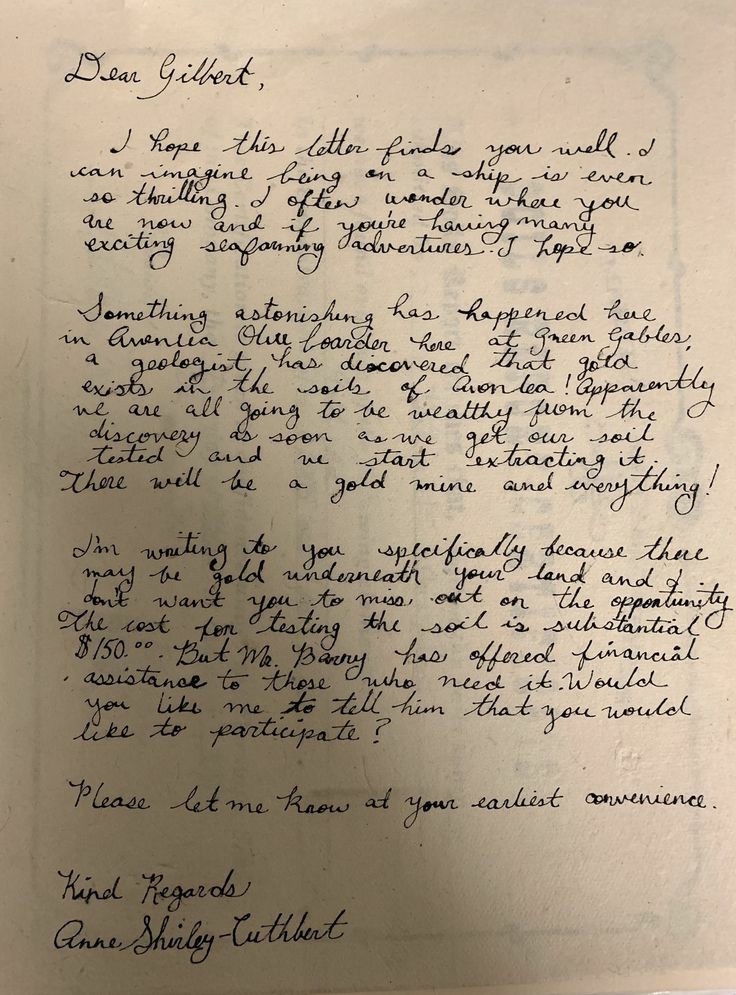 Dear Gilbert,
I hope this letter finds you well. I
can imagine being on a ship is even
so thrilling. I often wonder where you
are now and if you're having many
exciting seafarming adventures. I hope so.
Something astonishing has happened here
in Avonlea Our boarder here at Green Gables,
a geologist, has discovered that gold
exists in the soils of Avonlea! Apparently
we are all going to be wealthy from the
discovery as soon as we get our soil
tested and we start extracting it.
There will be a gold mine and everything!
I'm writing to you specifically because there
may be gold underneath your land and I
don't want you to miss out on the opportunity.
The cost for testing the soil is substantial
$150.00. But Mr. Barry has offered financial
assistance to those who need it. Would
you like me to tell him that you would
like to participate?
Please let me know at your earliest convenience.
Kind Regards
Anne Shirley-Cuthbert